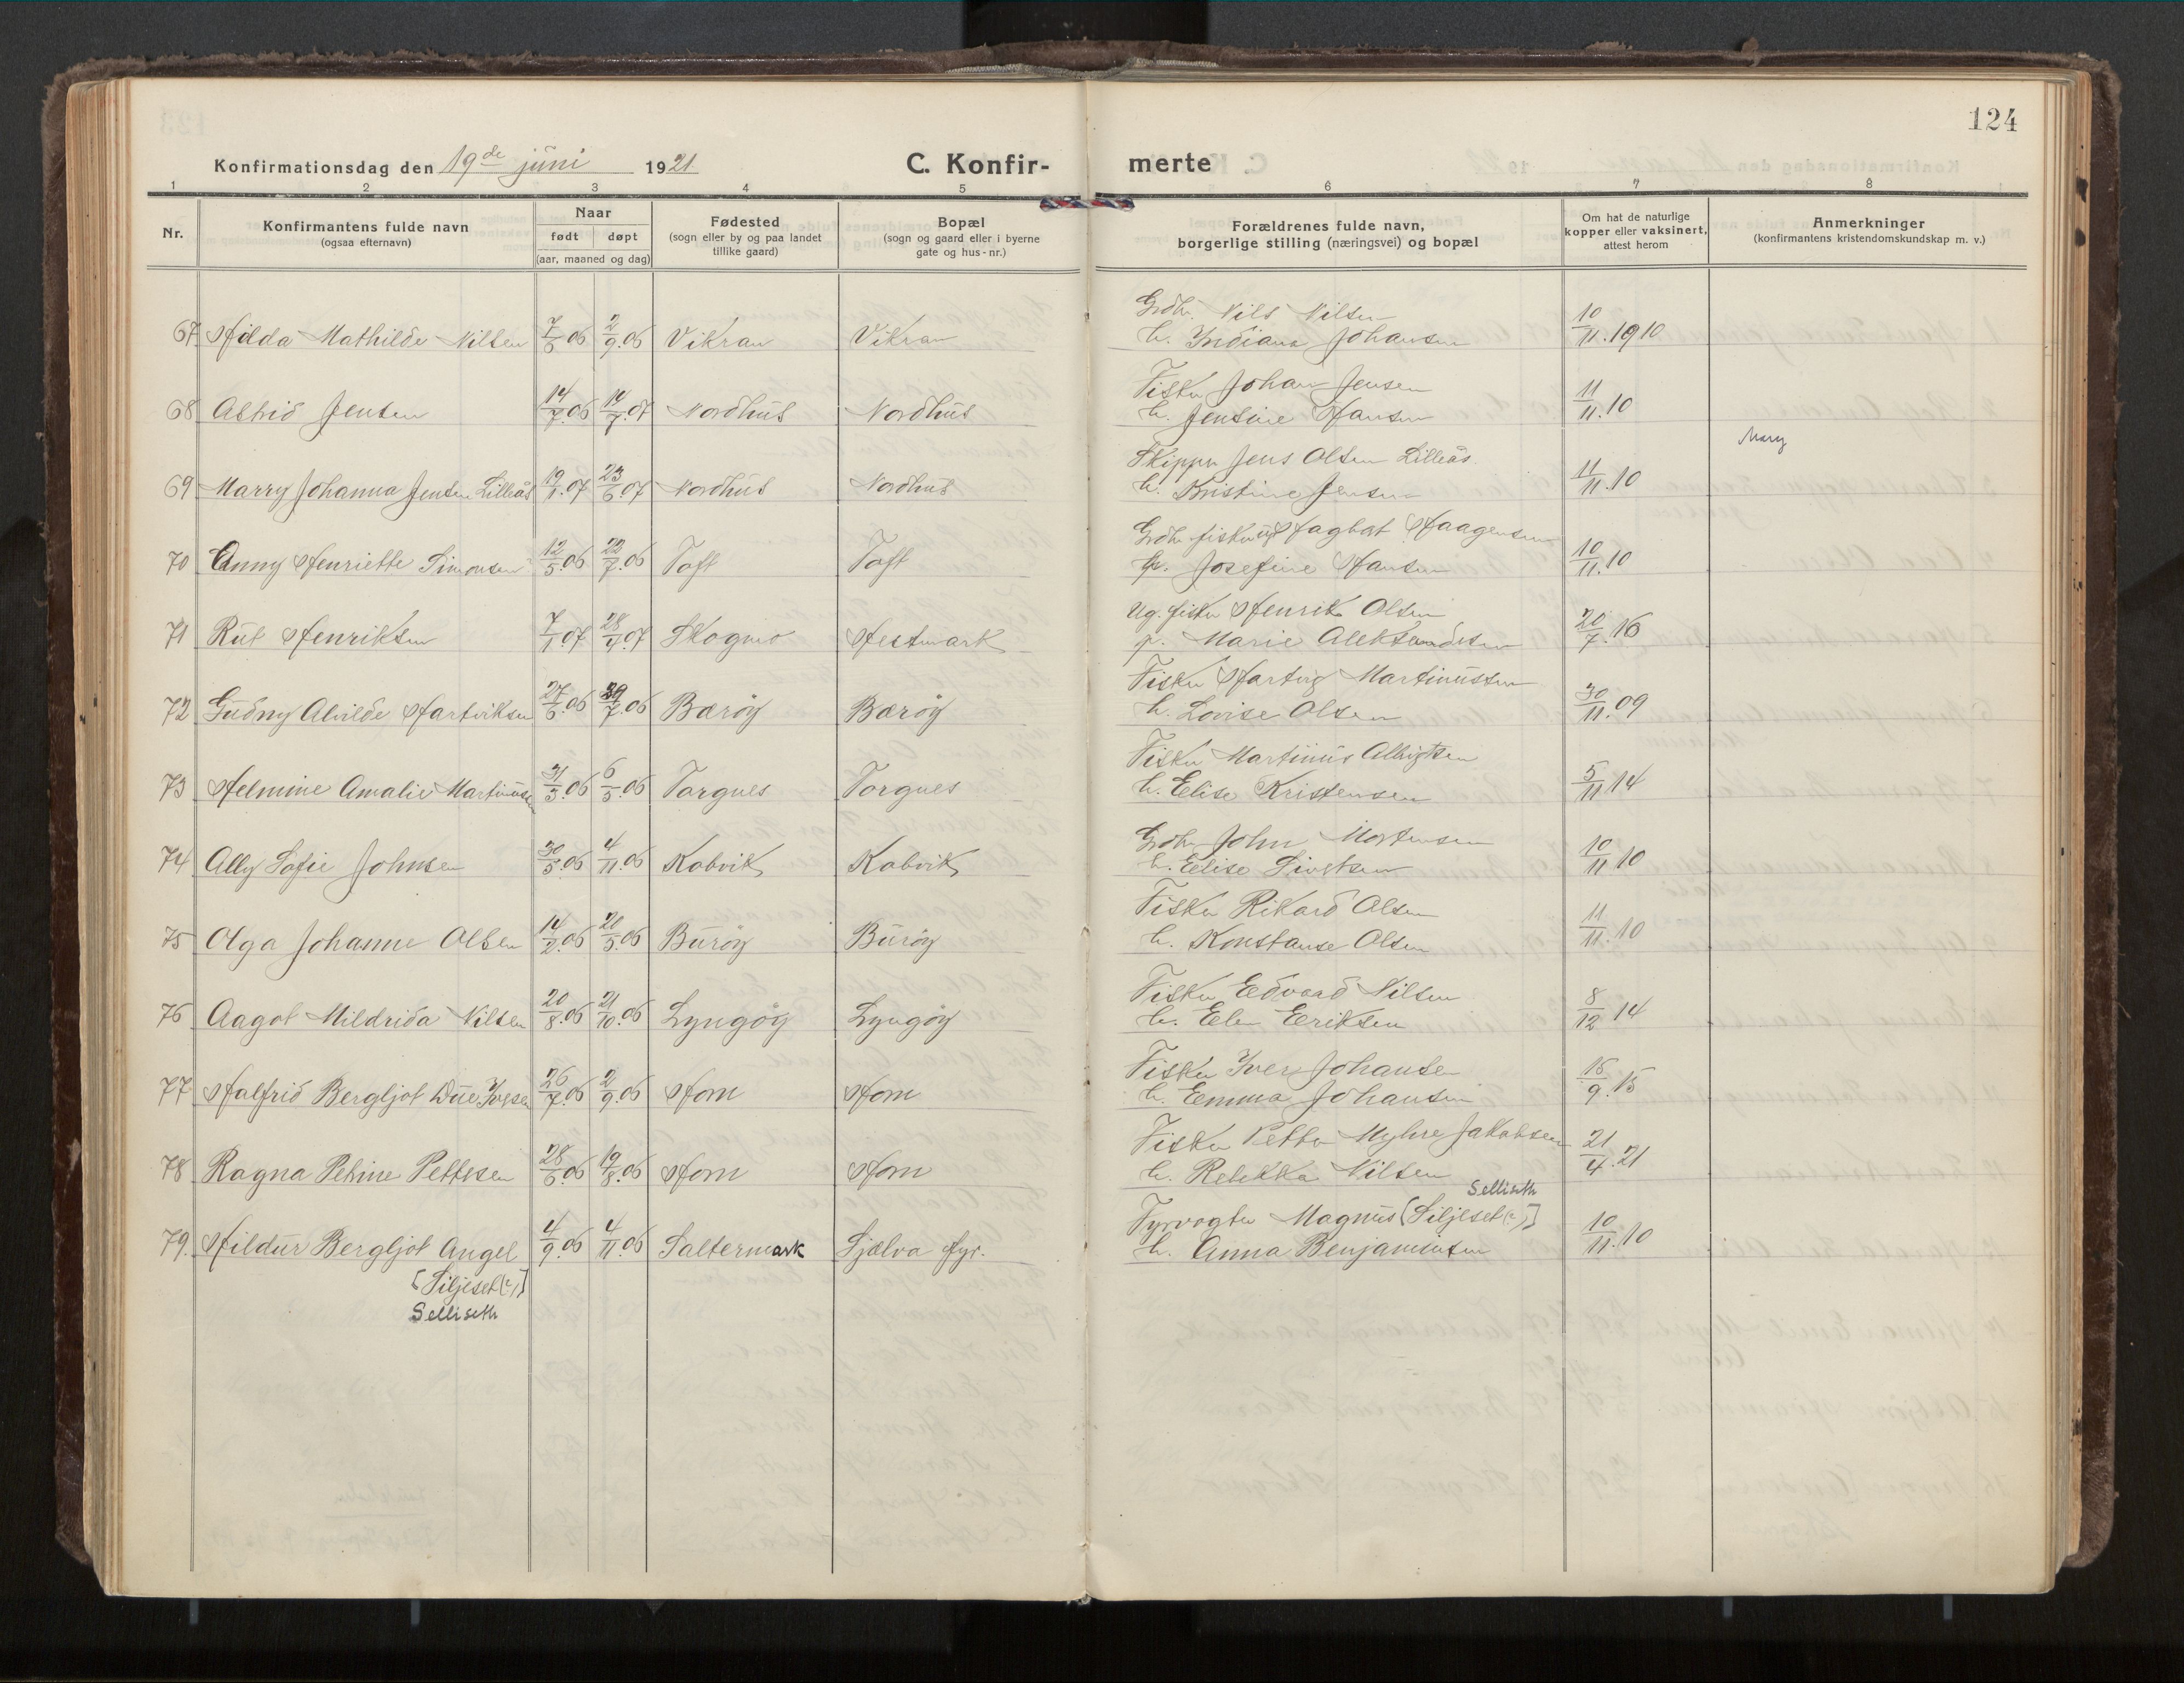 124
Konfirmationsdag den 19de juni 1921
C. Konfir-
merte
1 2 3 4 5 6 7 8
Nr.
Konfirmantens fulde navn
(ogsaa efternavn)
Naar
født døpt
(aar, maaned og dag)
Fødested
(sogn eller by og paa landet
tillike gaard)
Bopæl
(sogn og gaard eller i byerne
gate og hus-nr.)
Forældrenes fulde navn,
borgerlige stilling (næringsvei) og bopæl
Om hat de naturlige
kopper eller vaksinert,
attest herom
Anmerkninger
(konfirmantens kristendomskundskap m. v.)
Grdbr. Nils Nilsen
67 Hilda Mathilde Nilsen 7/6.06 2/9.06 Vikran Vikran h. Indiana Johansen 10/11.1910
Fisker Johan Jensen
68 Astrid Jensen 14/7.06 14/7.07 Nordhus Nordhus h. Jensine Hansen 11/11.10
Mary
Skipper Jens Olsen Lilleås
69 Marry Johanna Jensen Lilleås 19/1.07 23/6.07 Nordhus Nordhus h. Kristine Jensen 11/11.10
Grdbr. fisker Hagbat Haagensen
70 Anny Henriette Simonsen 12/5.06 22/7.06 Toft Toft p. Josefine Hansen 10/11.10
Ug. fisker Henrik Olsen
71 Rut Henriksen 7/1.07 28/4.07 Skogmo Hestmark p. Marie Aleksandersen 20/7.16
Fisker Hartvig Martinussen
72 Gudny Alvilde Hartviksen 27/6.06 29/7.06 Bærøy Bærøy h. Lovise Olsen 30/11.09
Fisker Martinus Albrigtsen
73 Helmine Amalie Martinusen 31/3.06 6/5.06 Torgnes Torgnes h. Elise Kristensen 5/11.14
Grdbr. John Mortensen
74 Ally Sofie Johnsen 30/5.06 4/11.06 Kobvik Kobvik h. Elise Sivertsen 10/11.10
Fisker Rikard Olsen
75 Olga Johanne Olsen 14/2.06 20/5.06 Burøy Burøy h. Konstanse Olsen 11/11.10
Fisker Edvard Nilsen
76 Aagot Mildrida Nilsen 20/8.06 21/10.06 Lyngøy Lyngøy h. Elen Eriksen 8/12.14
Fisker Iver Johansen
77 Halfrid Bergljot Due Iversen 26/7.06 2/9.06 Horn Horn h. Emma Johansen 16/9.15
Fisker Petter Myhre Jakobsen
78 Ragna Petrine Pettersen 28/6.06 19/8.06 Horn Horn h. Rebekka Nilsen 21/4.21
Selliseth
Fyrvogter Magnus [Siljeset(?)]
79. Hildur Bergljot Angel 4/9.06 4/11.06 Saltermark Sjælva fyr. h. Anna Benjaminsen 10/11.10
[Siljeset(?)]
Selliseth